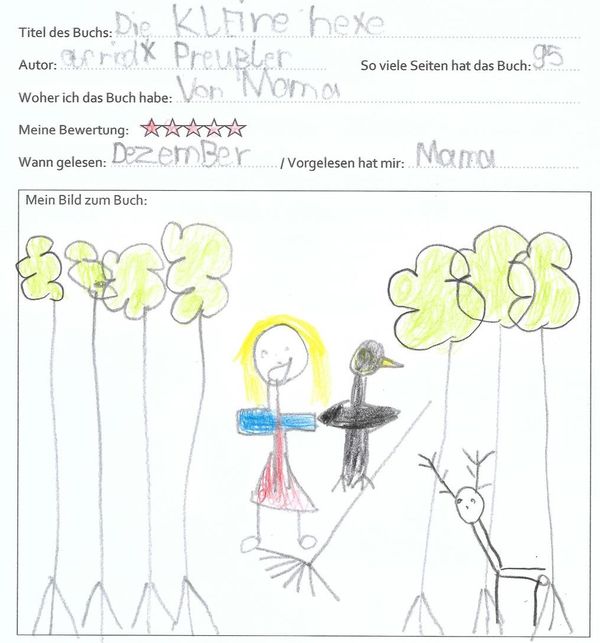 Titel des Buchs: Die KLEine hexe
Autor: Preußler So viele Seiten hat das Buch: 95
Woher ich das Buch habe: Von Mama
Meine Bewertung:
Wann gelesen: DezemBer / Vorgelesen hat mir: Mama
Mein Bild zum Buch: